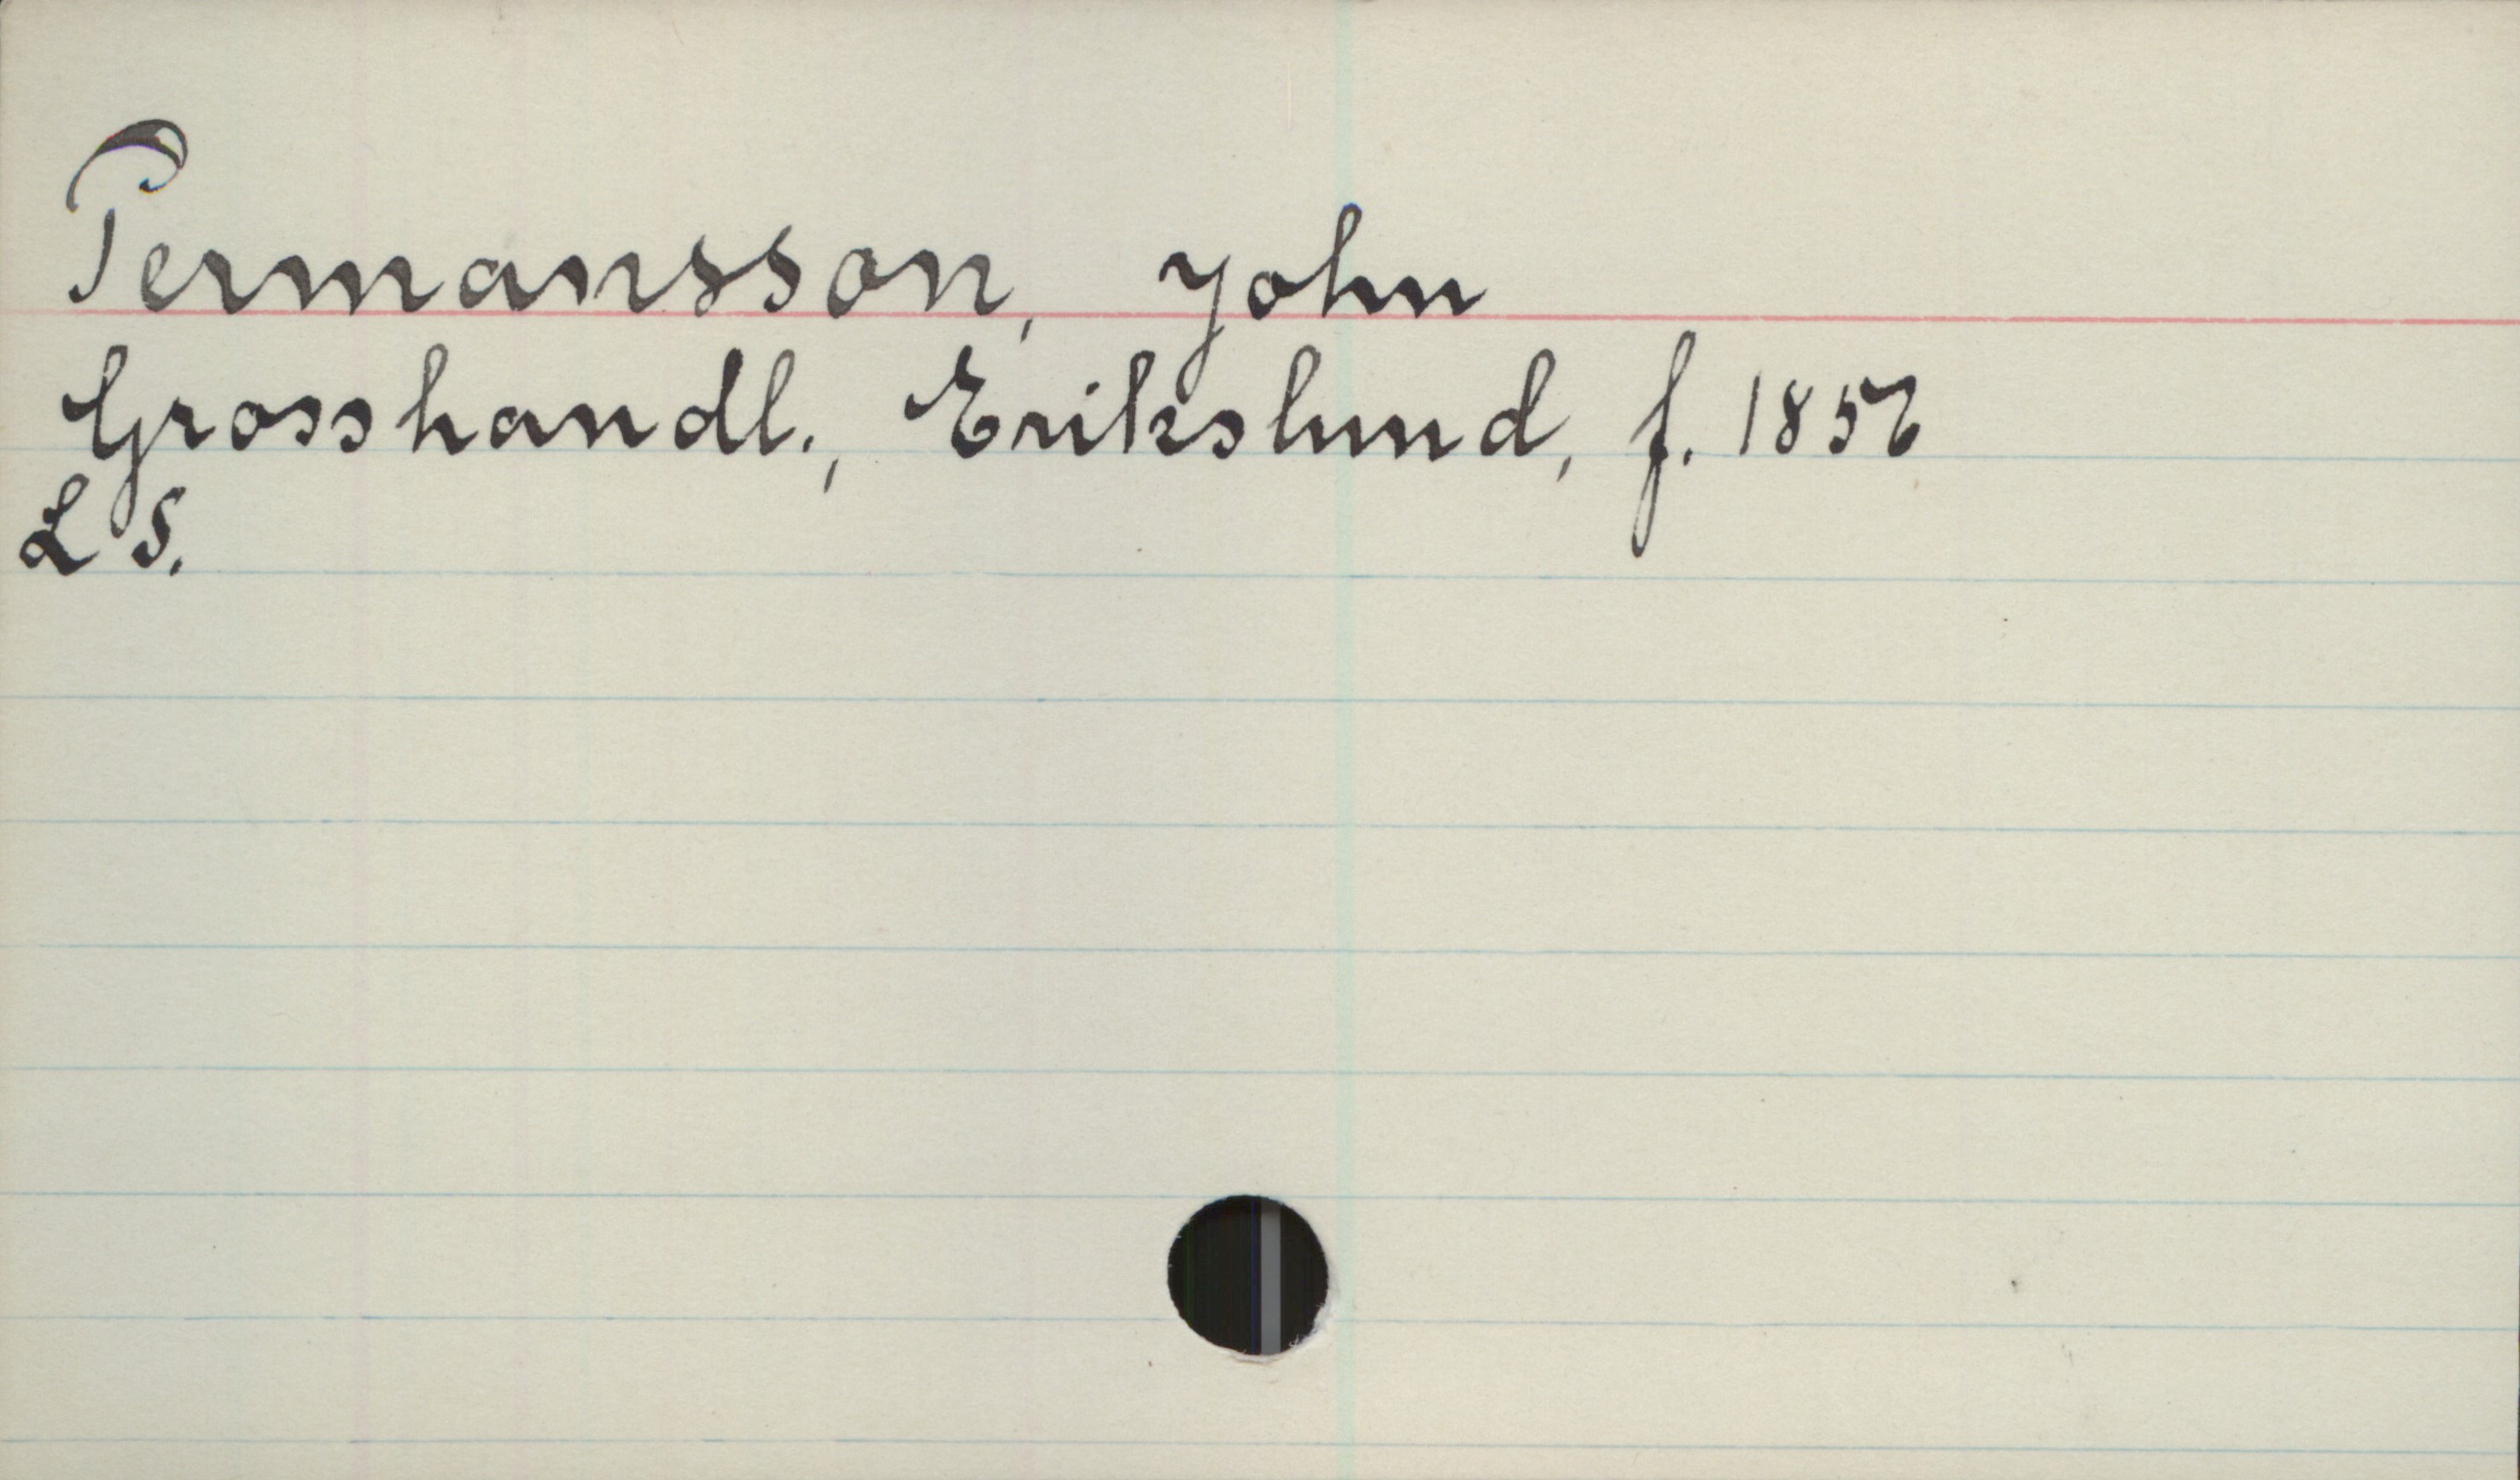 Permansson, John
Grosshandl., Erikslund, f. 1856
L S.